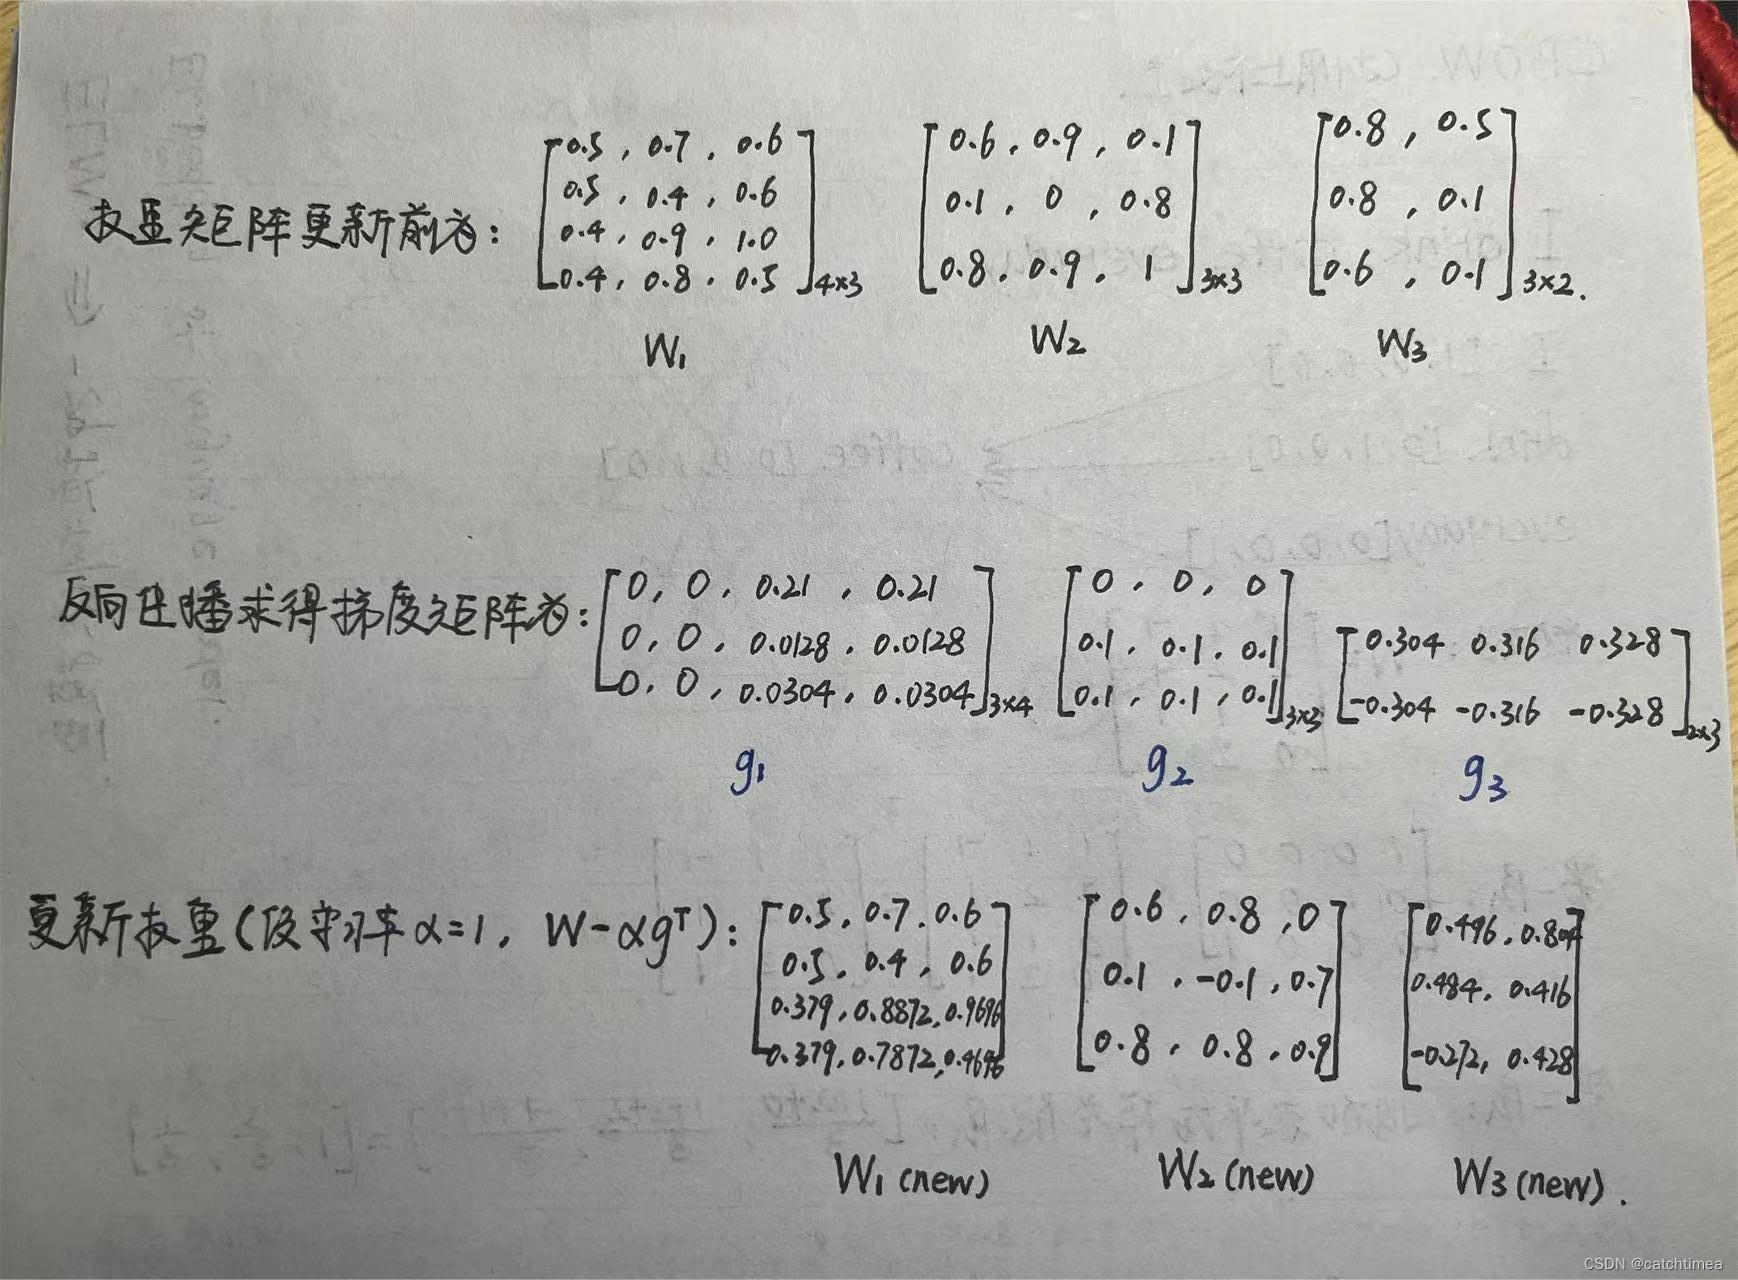 权重矩阵更新前为:
0.5, 0.7, 0.6
0.5, 0.4, 0.6
0.4, 0.9, 1.0
0.4, 0.8, 0.5
4×3
W₁
0.6, 0.9, 0.1
0.1, 0, 0.8
0.8, 0.9, 1
3×3
W₂
0.8, 0.5
0.8, 0.1
0.6, 0.1
3×2.
W₃
反向传播求得梯度矩阵为:
0, 0, 0.21, 0.21
0, 0, 0.0128, 0.0128
0, 0, 0.0304, 0.0304
3×4
g₁
0, 0, 0
0.1, 0.1, 0.1
0.1, 0.1, 0.1
3×3
g₂
0.304 0.316 0.328
-0.304 -0.316 -0.328
2×3
g₃
更新权重(设学习率α=1, W-αgᵀ):
0.5, 0.7, 0.6
0.5, 0.4, 0.6
0.379, 0.8872, 0.9696
0.379, 0.7872, 0.4696
W₁(new)
0.6, 0.8, 0
0.1, -0.1, 0.7
0.8, 0.8, 0.9
W₂(new)
0.496, 0.804
0.484, 0.416
-0.272, 0.428
W₃(new).
CSDN @catchtimea